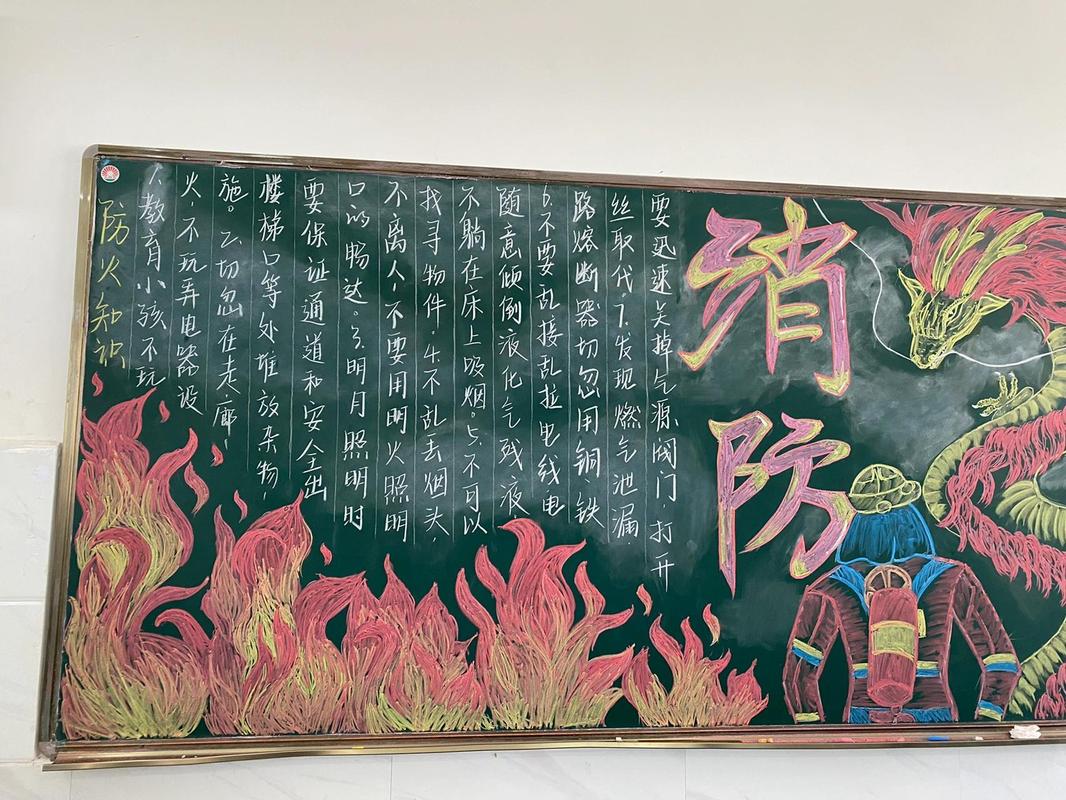 防火知识
1、教育小孩不玩
火,不玩弄电器设
施。2、切忽在走廊、
楼梯口等处堆放杂物,
要保证通道和安全出
口的畅达。3.明月照明时
不离人,不要用明火照明
找寻物件.4.不乱去烟头、
不躺在床上吸烟。5、不可以
随意倾倒液化气残液.
6.不要乱接乱拉电线电
路熔断器切忽用铜、铁
丝取代.7.发现燃气泄漏.
要迅速关掉气源阀门,打开
消防